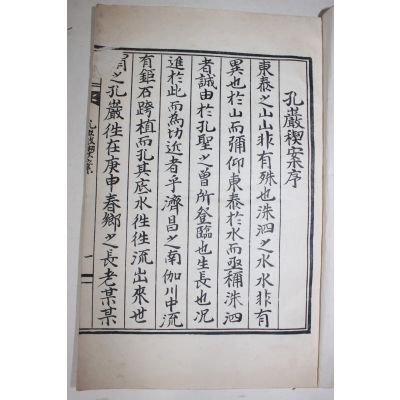 孔巖稧案序
東泰之山山非有殊也洙泗之水水非有
異也於山而弥仰東泰於水而亟稱洙泗
者誠由於孔聖之曾所登臨也生長也况
進於此而為切近者乎濟昌之南伽川中流
有鉅石跨植而孔其底水徃徃流出來世
之孔巖徃在庚申春鄉之長老某某
孔巖稧案
一